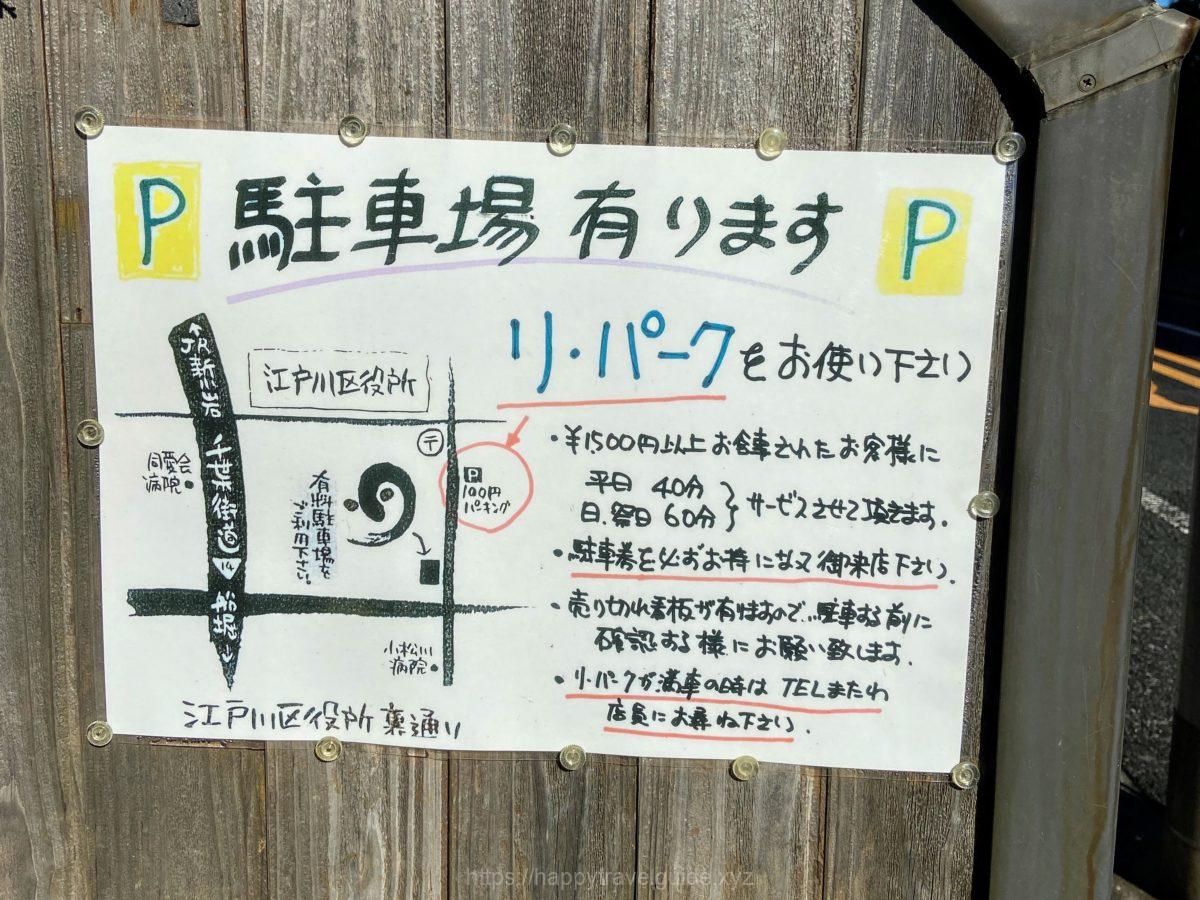 P 駐車場 有ります P
リ・パークをお使い下さい
・¥1,500円以上お食事されたお客様に
平日 40分
日、祭日 60分
サービスさせて頂きます。
・駐車券を必ずお持になって御来店下さい。
・売り切れ看板が有りますので、駐車する前に
確認する様にお願い致します。
・リ・パークが満車の時は TELまたわ
店員にお尋ね下さい。
↑JR新小岩
千葉街道
14
船堀↓
江戸川区役所
同愛会
病院
〒
P
100円
パーキング
有料駐車場を
ご利用下さい。
小松川
病院
江戸川区役所 裏通り
https://happytravelguide.xyz